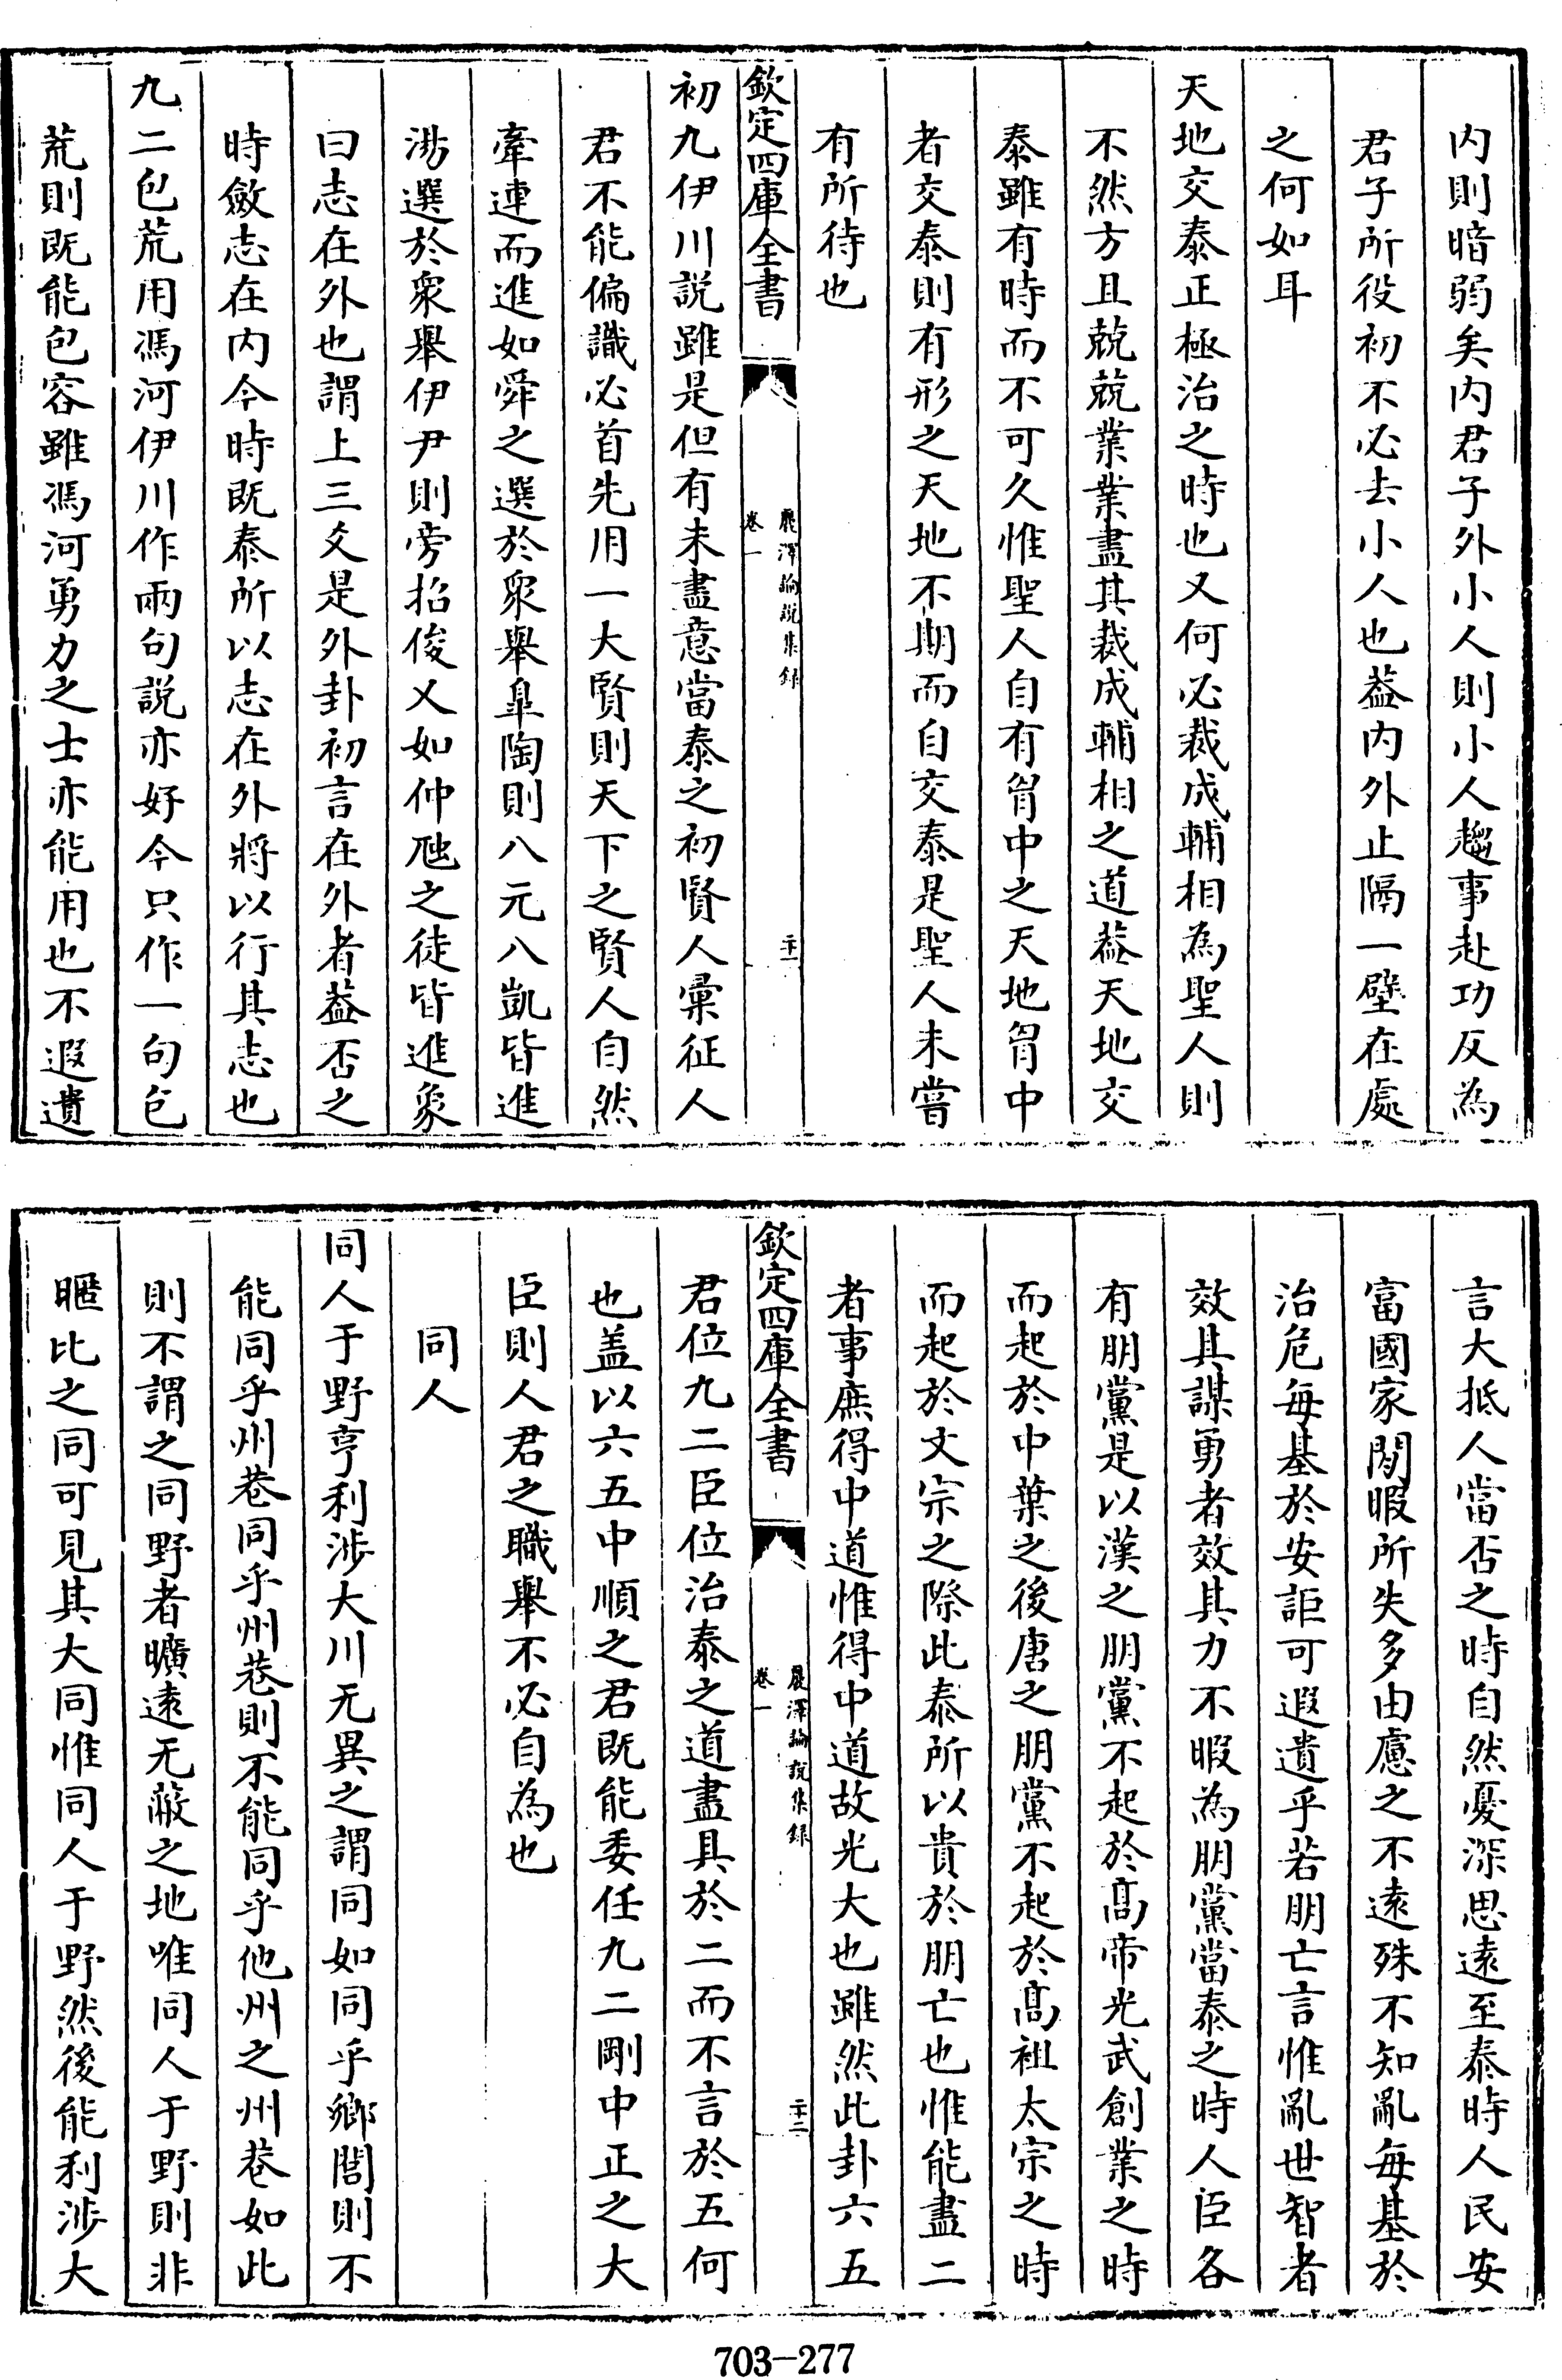 内則暗弱矣内君子外小人則小人趨事赴功反為
君子所役初不必去小人也葢内外止隔一壁在處
之何如耳
天地交泰正極治之時也又何必裁成輔相為聖人則
不然方且兢兢業業盡其裁成輔相之道葢天地交
泰雖有時而不可久惟聖人自有胷中之天地胷中
者交泰則有形之天地不期而自交泰是聖人未嘗
有所待也
欽定四庫全書
麗澤論説集録
卷一
二十一
初九伊川説雖是但有未盡意當泰之初賢人彙征人
君不能偏識必首先用一大賢則天下之賢人自然
牽連而進如舜之選於衆舉臯陶則八元八凱皆進
湯選於衆舉伊尹則旁招俊乂如仲虺之徒皆進象
曰志在外也謂上三爻是外卦初言在外者葢否之
時斂志在内今時既泰所以志在外將以行其志也
九二包荒用馮河伊川作兩句説亦好今只作一句包
荒則既能包容雖馮河勇力之士亦能用也不遐遺
言大抵人當否之時自然憂深思遠至泰時人民安
富國家閒暇所失多由慮之不遠殊不知亂每基於
治危每基於安詎可遐遺乎若朋亡言惟亂世智者
效其謀勇者效其力不暇為朋黨當泰之時人臣各
有朋黨是以漢之朋黨不起於髙帝光武創業之時
而起於中葉之後唐之朋黨不起於髙祖太宗之時
而起於文宗之際此泰所以貴於朋亡也惟能盡二
者事庶得中道惟得中道故光大也雖然此卦六五
欽定四庫全書
麗澤論説集録
卷一
二十二
君位九二臣位治泰之道盡具於二而不言於五何
也盖以六五中順之君既能委任九二剛中正之大
臣則人君之職舉不必自為也
同人
同人于野亨利涉大川无異之謂同如同乎鄉閭則不
能同乎州巷同乎州巷則不能同乎他州之州巷如此
則不謂之同野者曠逺无蔽之地唯同人于野則非
暱比之同可見其大同惟同人于野然後能利涉大
703-277